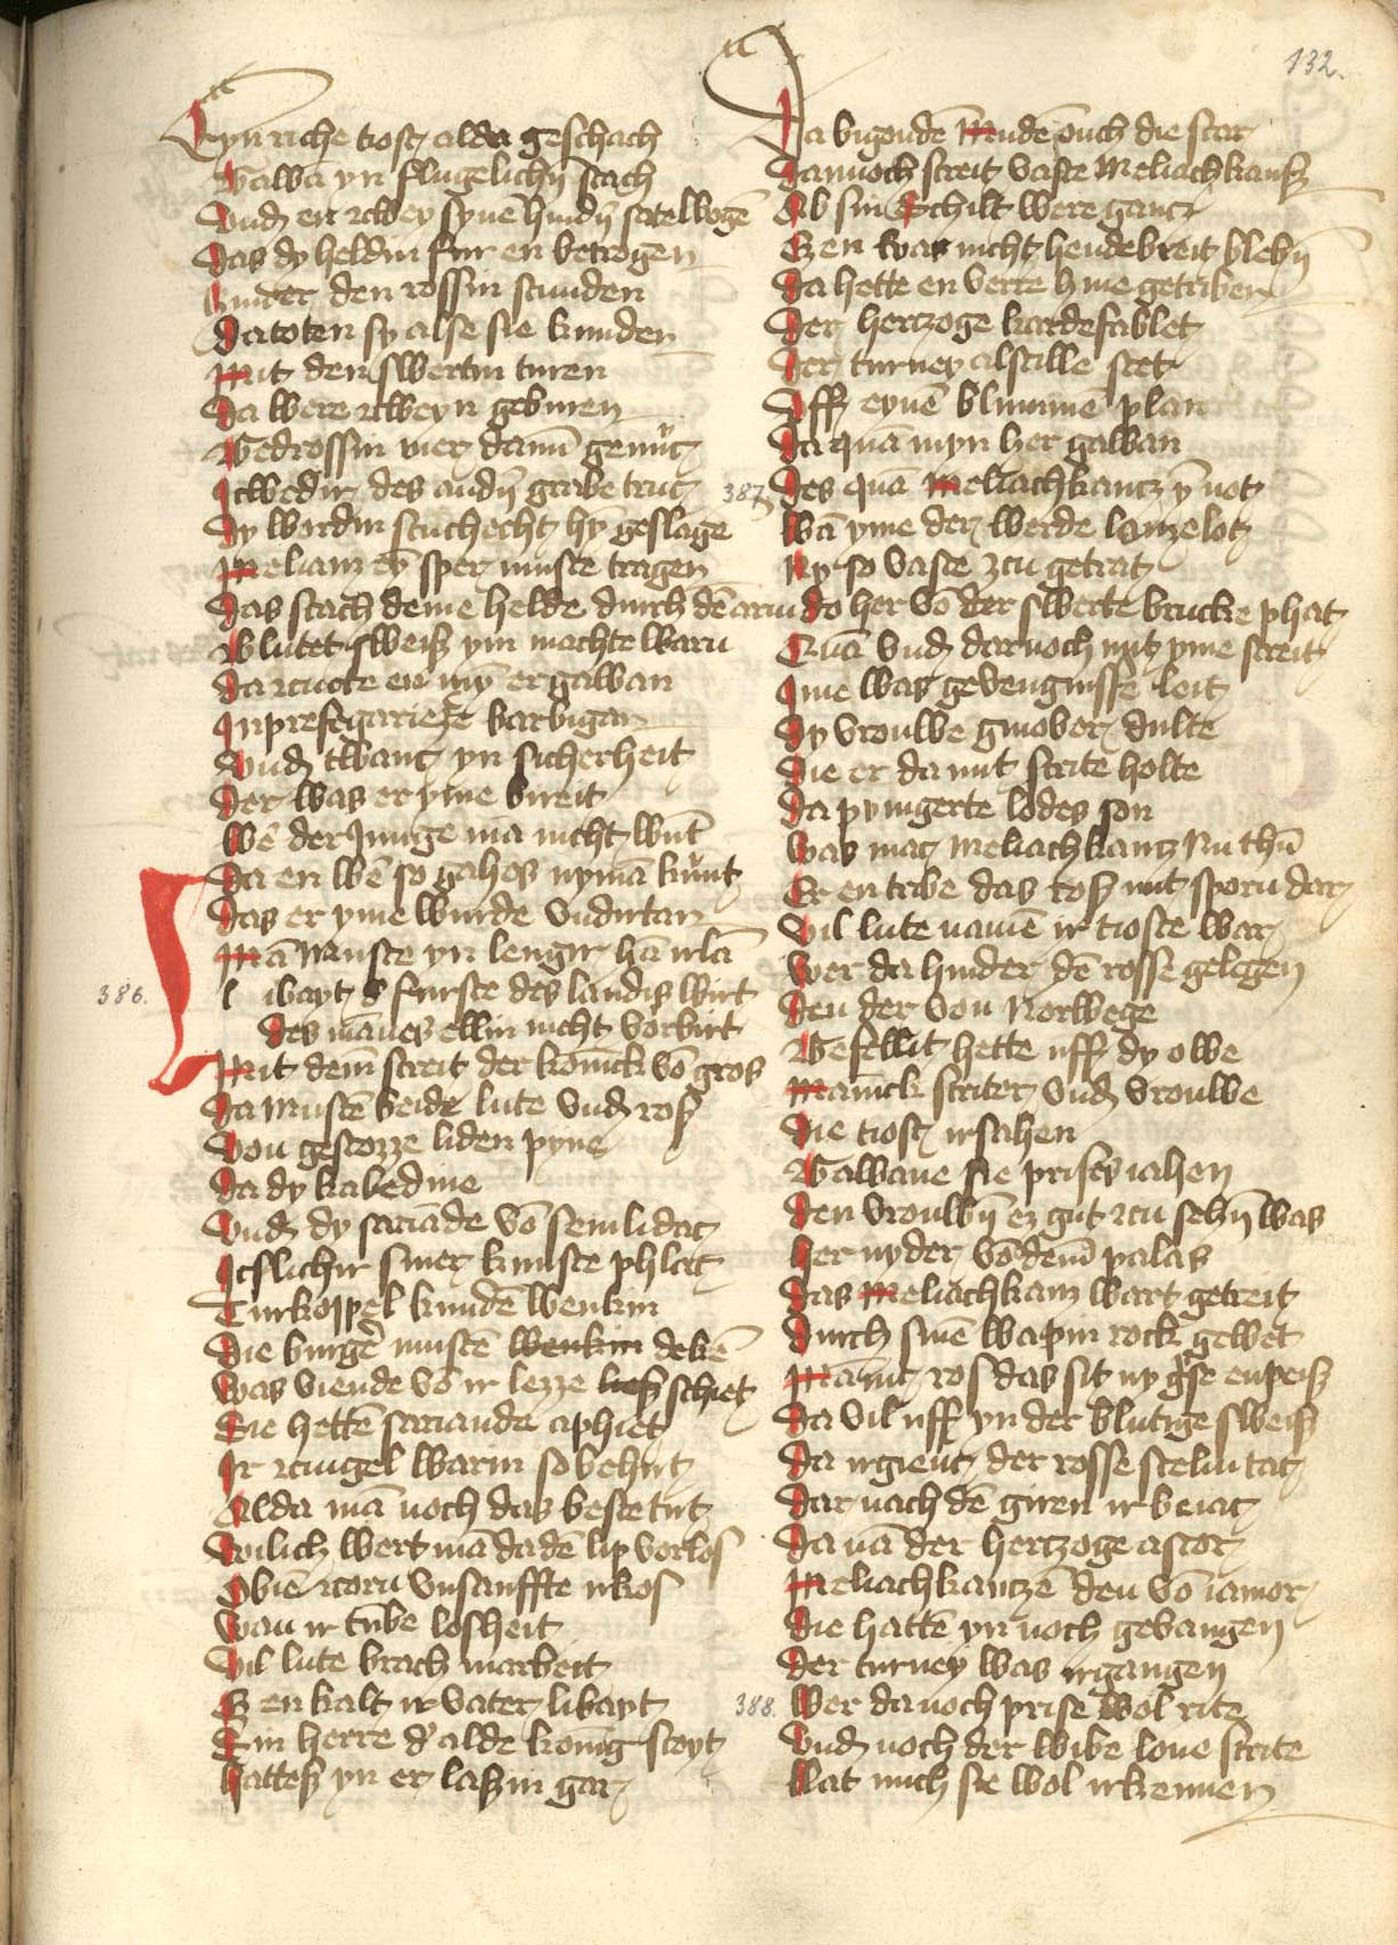 132.
Eyn riche tiost alda geschach
Gawā yn flugelichn̄ stach
Vnd en zcwey synē hindn̄ satelbogē
Das dy heldin fur en betrogen
Hinder den rossin stunden
Da toten sy alse sie kunden
Mit den swertin turen
Da were zcweyn geburen
Gedrossin mer dann̄ genuc
Itwedir des andn̄ garbe truc
Dy wordin stuchecht hȳ geslage
Melianz eȳ sper muste tragen
Das stach deme helde durch dē arm
Blutet sweiß ym machte warn
Da zcucte en mȳ er gawan
In prefegarieze barbigan
Vnd twanc yn sicherheit
Der was er yme bireit
Wē der Junge mā nicht wūt
Da en wē so gahes nymā kunt
Das er yme wurde vndirtan
Mā Muste yn lengir hā irlā
386.
l ibayt d' furste des landis wirt
des mānes ellin nicht vorbirt
Mit dem̄ streit der konīck vō gros
Da Mustē beide lute vnd ros
Von gestozze liden pyne
Da dy kabedine
Vnd dy scaciāde vō semlidac
Itslichir siner kunste phlac
Turkoppel kundē wenkin
Die burgē mustē wenkin dekē
Was viende vō ir lezze ließ schiet
Die hettē scariande aphiet
Ir zcingel warin so behut
Alda mā noch das beste tut
Wilich wert mā da dē lip vorlos
Obiē zcorn vnsanffte irkos
Wan ir tūbe losheit
Vil lute brach in arbeit
Es enkalt ir vater libayt
Sin herre d' alde konīg scoyt
Hatteß yn er laßin gar
Da bigondē Mudē ouch die scar
Dannoch streit vaste Meliachkansz
Ab sin Schilt were gancz
Ezen was nicht hendebreit blebn̄
Da hette en verre hine getriben
Der hertzoge kardefablet
Der turney alstille stet
Vff eynē blumīnē plan
Da quā myn her gawan
387.
Des quā Meliachkantz ȳ not
Wā yme der werde lanzelot
Ny so vaste zcu getrat
Do her vō der swerte brucke phat
Quā vnd darnoch mit yme streit
Ime was gevengnisse leit
Dy vrouwe ginover dulte
Die er da mit strite holte
Da pungerte lodes son
Was mac Meliachkantz Nu thū
Er en tribe das roß mit sporn dar
Vil lute namē ir tioste war
Wer da hinder dē rosse gelegen
Den der von Norwege
Gefellit hette uff dy owe
Manick striter vnd vrouwe
Die tiost irsahen
Gawane sie prises iahen
Den vrouwn̄ ez gut zcu sehn̄ was
Her nyder vō dem̄ palas
Das Meliachkanz wart getreit
Durch sinē wapin rock gewet
Mānic ros das sit ny g'se enpeiß
Da vil uff yn der blutige sweiß
Da irgienc der rosse stelm tac
Dar nach dē giren ir beiac
Da nā der hertzoge astor
Meliachkantzē den vō iamor
Die hattē yn noch gevangen
Der turney was irgangen
388.
Wer da noch prise wol rite
Vnd noch der wibe lone strite
Nat mich sie wol irkennen